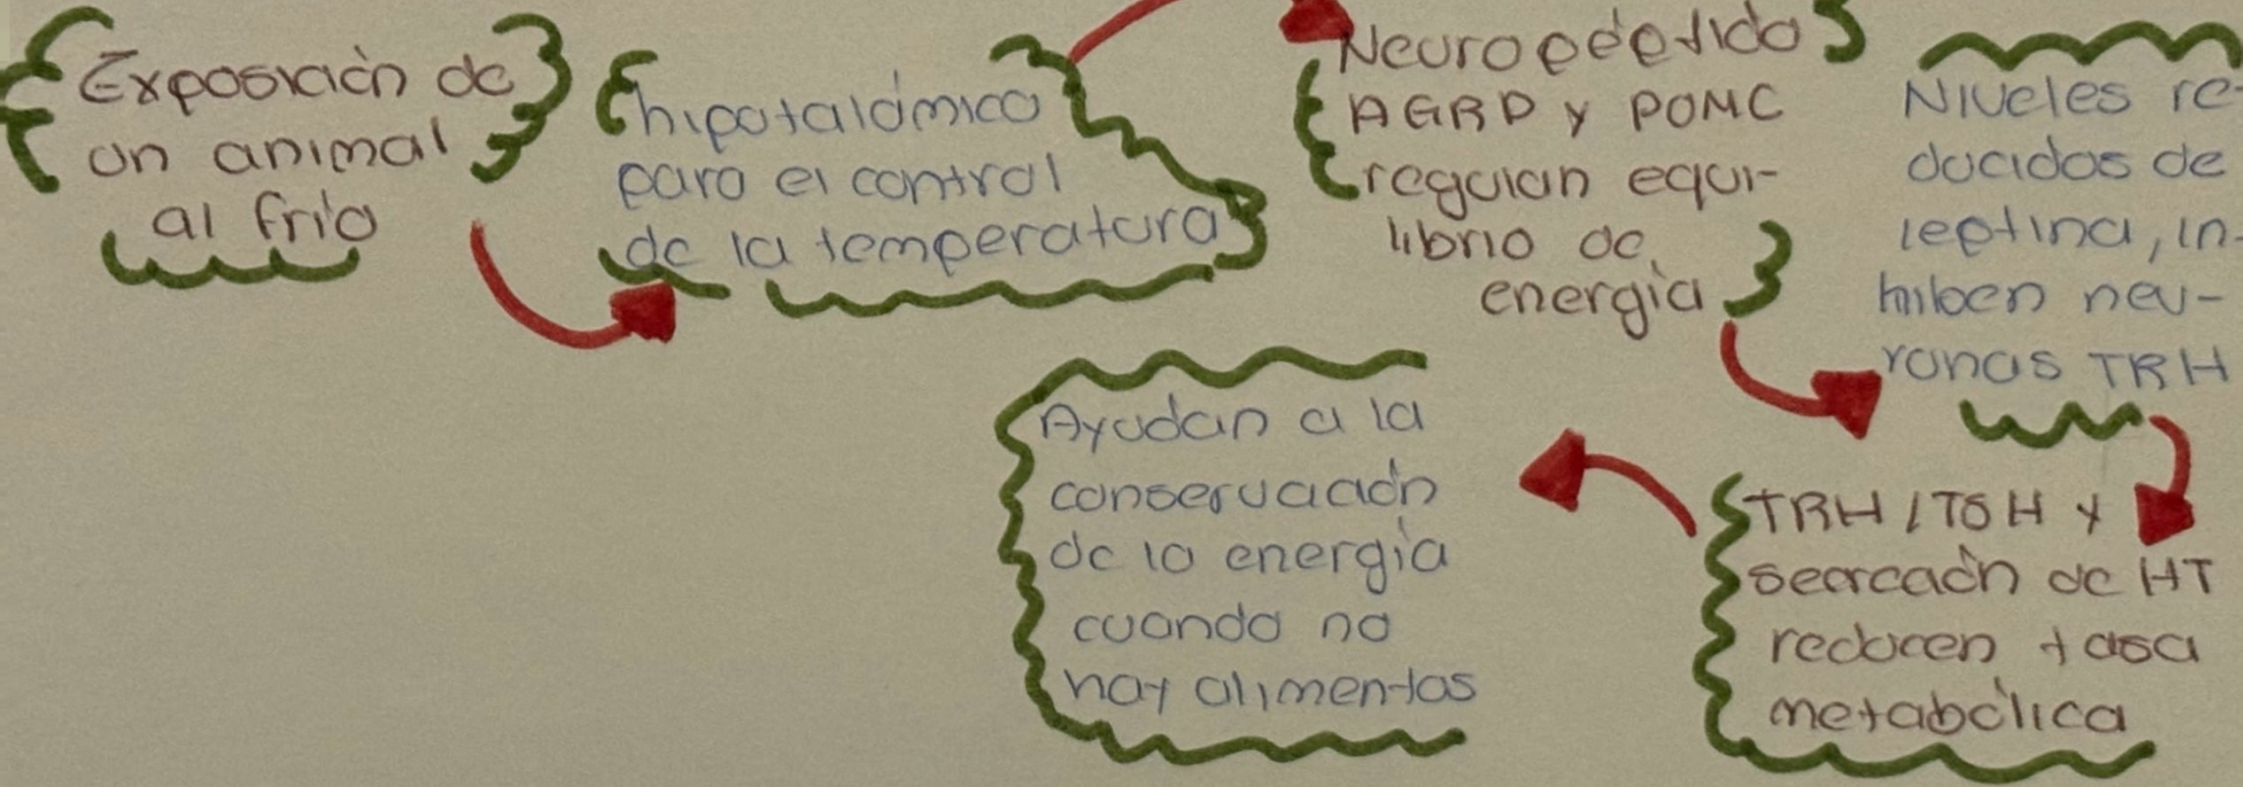 Exposición de
un animal
al frío
hipotalámico
para el control
de la temperatura
Neuropéptido
AGRP y POMC
regulan equi-
librio de
energía
Niveles re-
ducidos de
leptina, in-
hiben neu-
ronas TRH
TRH / TSH y
secreación de HT
reducen tasa
metabólica
Ayudan a la
conservación
de la energía
cuando no
hay alimentos